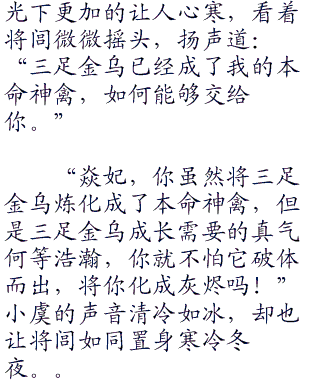 光下更加的让人心寒，看着
将闾微微摇头，扬声道：
“三足金乌已经成了我的本
命神禽，如何能够交给
你。”
“焱妃，你虽然将三足
金乌炼化成了本命神禽，但
是三足金乌成长需要的真气
何等浩瀚，你就不怕它破体
而出，将你化成灰烬吗！”
小虞的声音清冷如冰，却也
让将闾如同置身寒冷冬
夜。。